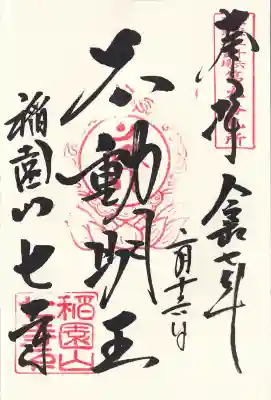 奉拝
令和七年
六月十三日
不動明王
稲園山七寺
稲園山